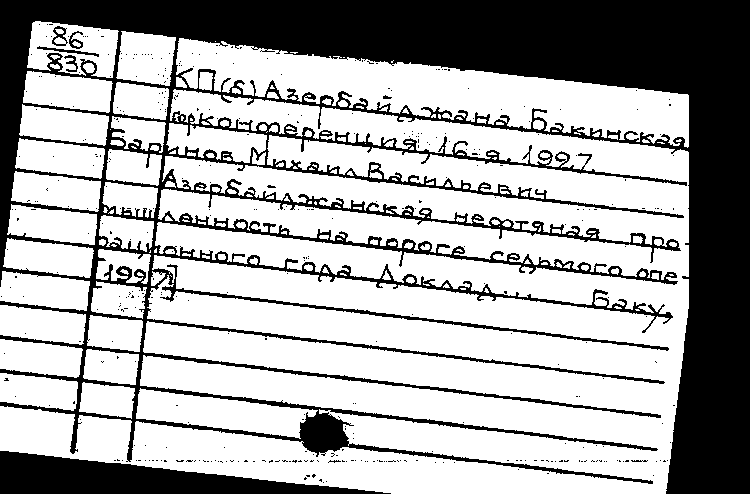 86
830
КП(б) Азербайджана. Бакинская
горконференция, 16-я. 1927.
Баринов, Михаил Васильевич
Азербайджанская нефтяная про-
мышленность на пороге седьмого опе-
рационного года Доклад... Баку,
[1927]